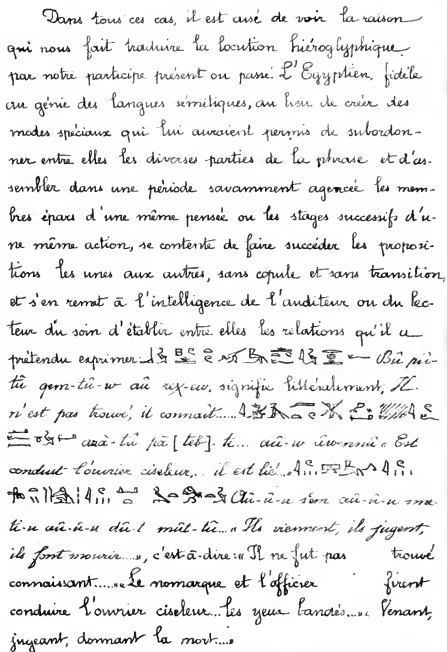 Dans tous ces cas, il est aisé de voir la raison
qui nous fait traduire la locution hiéroglyphique
par notre participe présent ou passé. L'Egyptien, fidèle
au génie des langues sémitiques, au lieu de créer des
modes spéciaux qui lui auraient permis de subordon-
ner entre elles les diverses parties de la phrase et d'as-
sembler dans une période savamment agencée les mem-
bres épars d'une même pensée ou les stages successifs d'u-
ne même action, se contente de faire succéder les proposi-
tions les unes aux autres, sans copule et sans transition,
et s'en remet à l'intelligence de l'auditeur ou du lec-
teur du soin d'établir entre elles les relations qu'il a
prétendu exprimer. Bû pû-
tû gem-tû-w aû rex-ew, signifie littéralement, Il
n'est pas trouvé, il connait....
pâ [teb]-ti... aû-w « Est
conduit l'ouvrier ciseleur,.. il est lié..» Aû-û-u sem aû-û-u
aû-û-u dû-t mût-tû... « Ils viennent, ils jugent,
ils font mourir...», c'est-à-dire: « Il ne fut pas trouvé
connaissant.....» « Le nomarque et l'officier firent
conduire l'ouvrier ciseleur... les yeux bandés...». Venant,
jugeant, donnant la mort....»